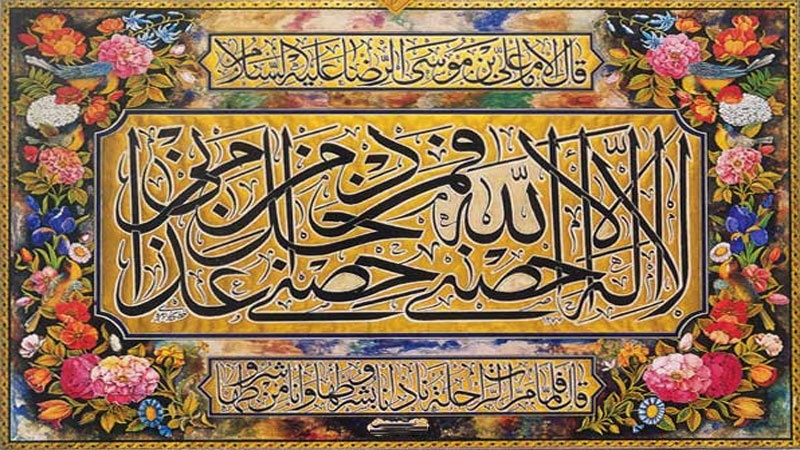 قال الامام علی بن موسی الرضا علیه السلام
لا إله إلا الله حصنی فمن دخل حصنی امن من عذابی
قال فلما مرت الراحلة نادانا بشروطها وانا من شروطها